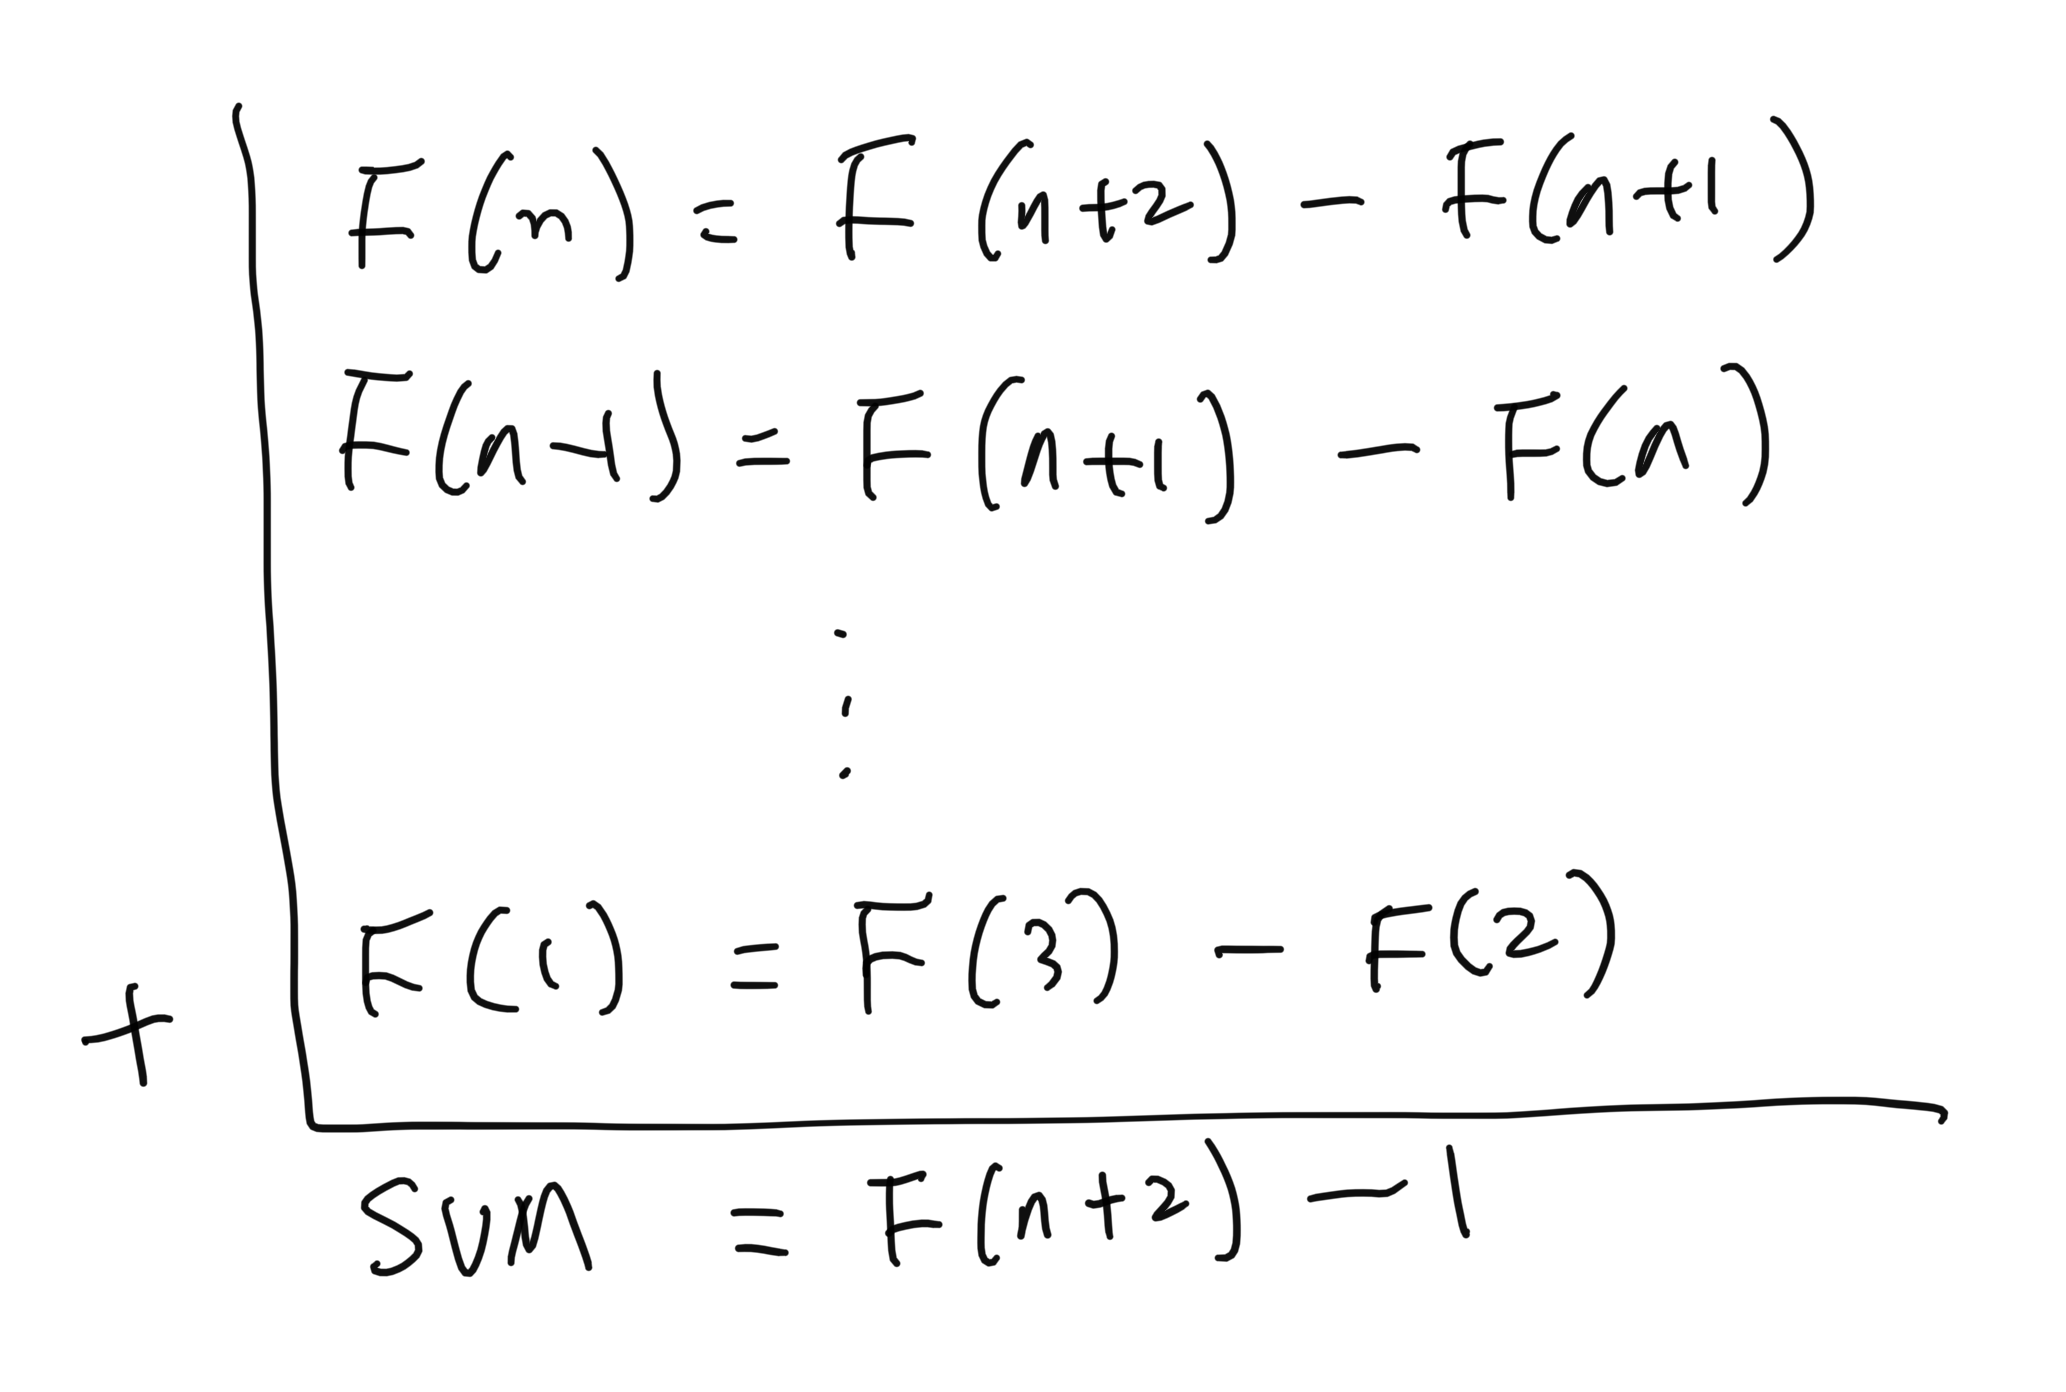 F(n) = F(n+2) - F(n+1)
F(n-1) = F(n+1) - F(n)
⋮
F(1) = F(3) - F(2)
+
Sum = F(n+2) - 1